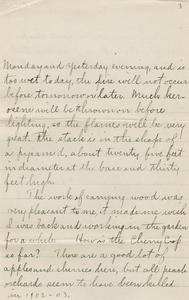 3
Monday and yesterday evening, and is
too wet today, the fire will not occur
before tomorrow or later. Much ker-
osene will be thrown on before
lighting, so the flames will be very
great. The stack is in the shape of
a pyramid, about twenty five feet
in diameter at the base and thirty
feet high.
The work of carrying wood was
very pleasant to me, it made me wish
I was back and working in the garden
for a while. How is the Cherry Crop
so far? There are a good lot of
apples and cherries here, but all peach
orchards seem to have been killed
in 1902-03.